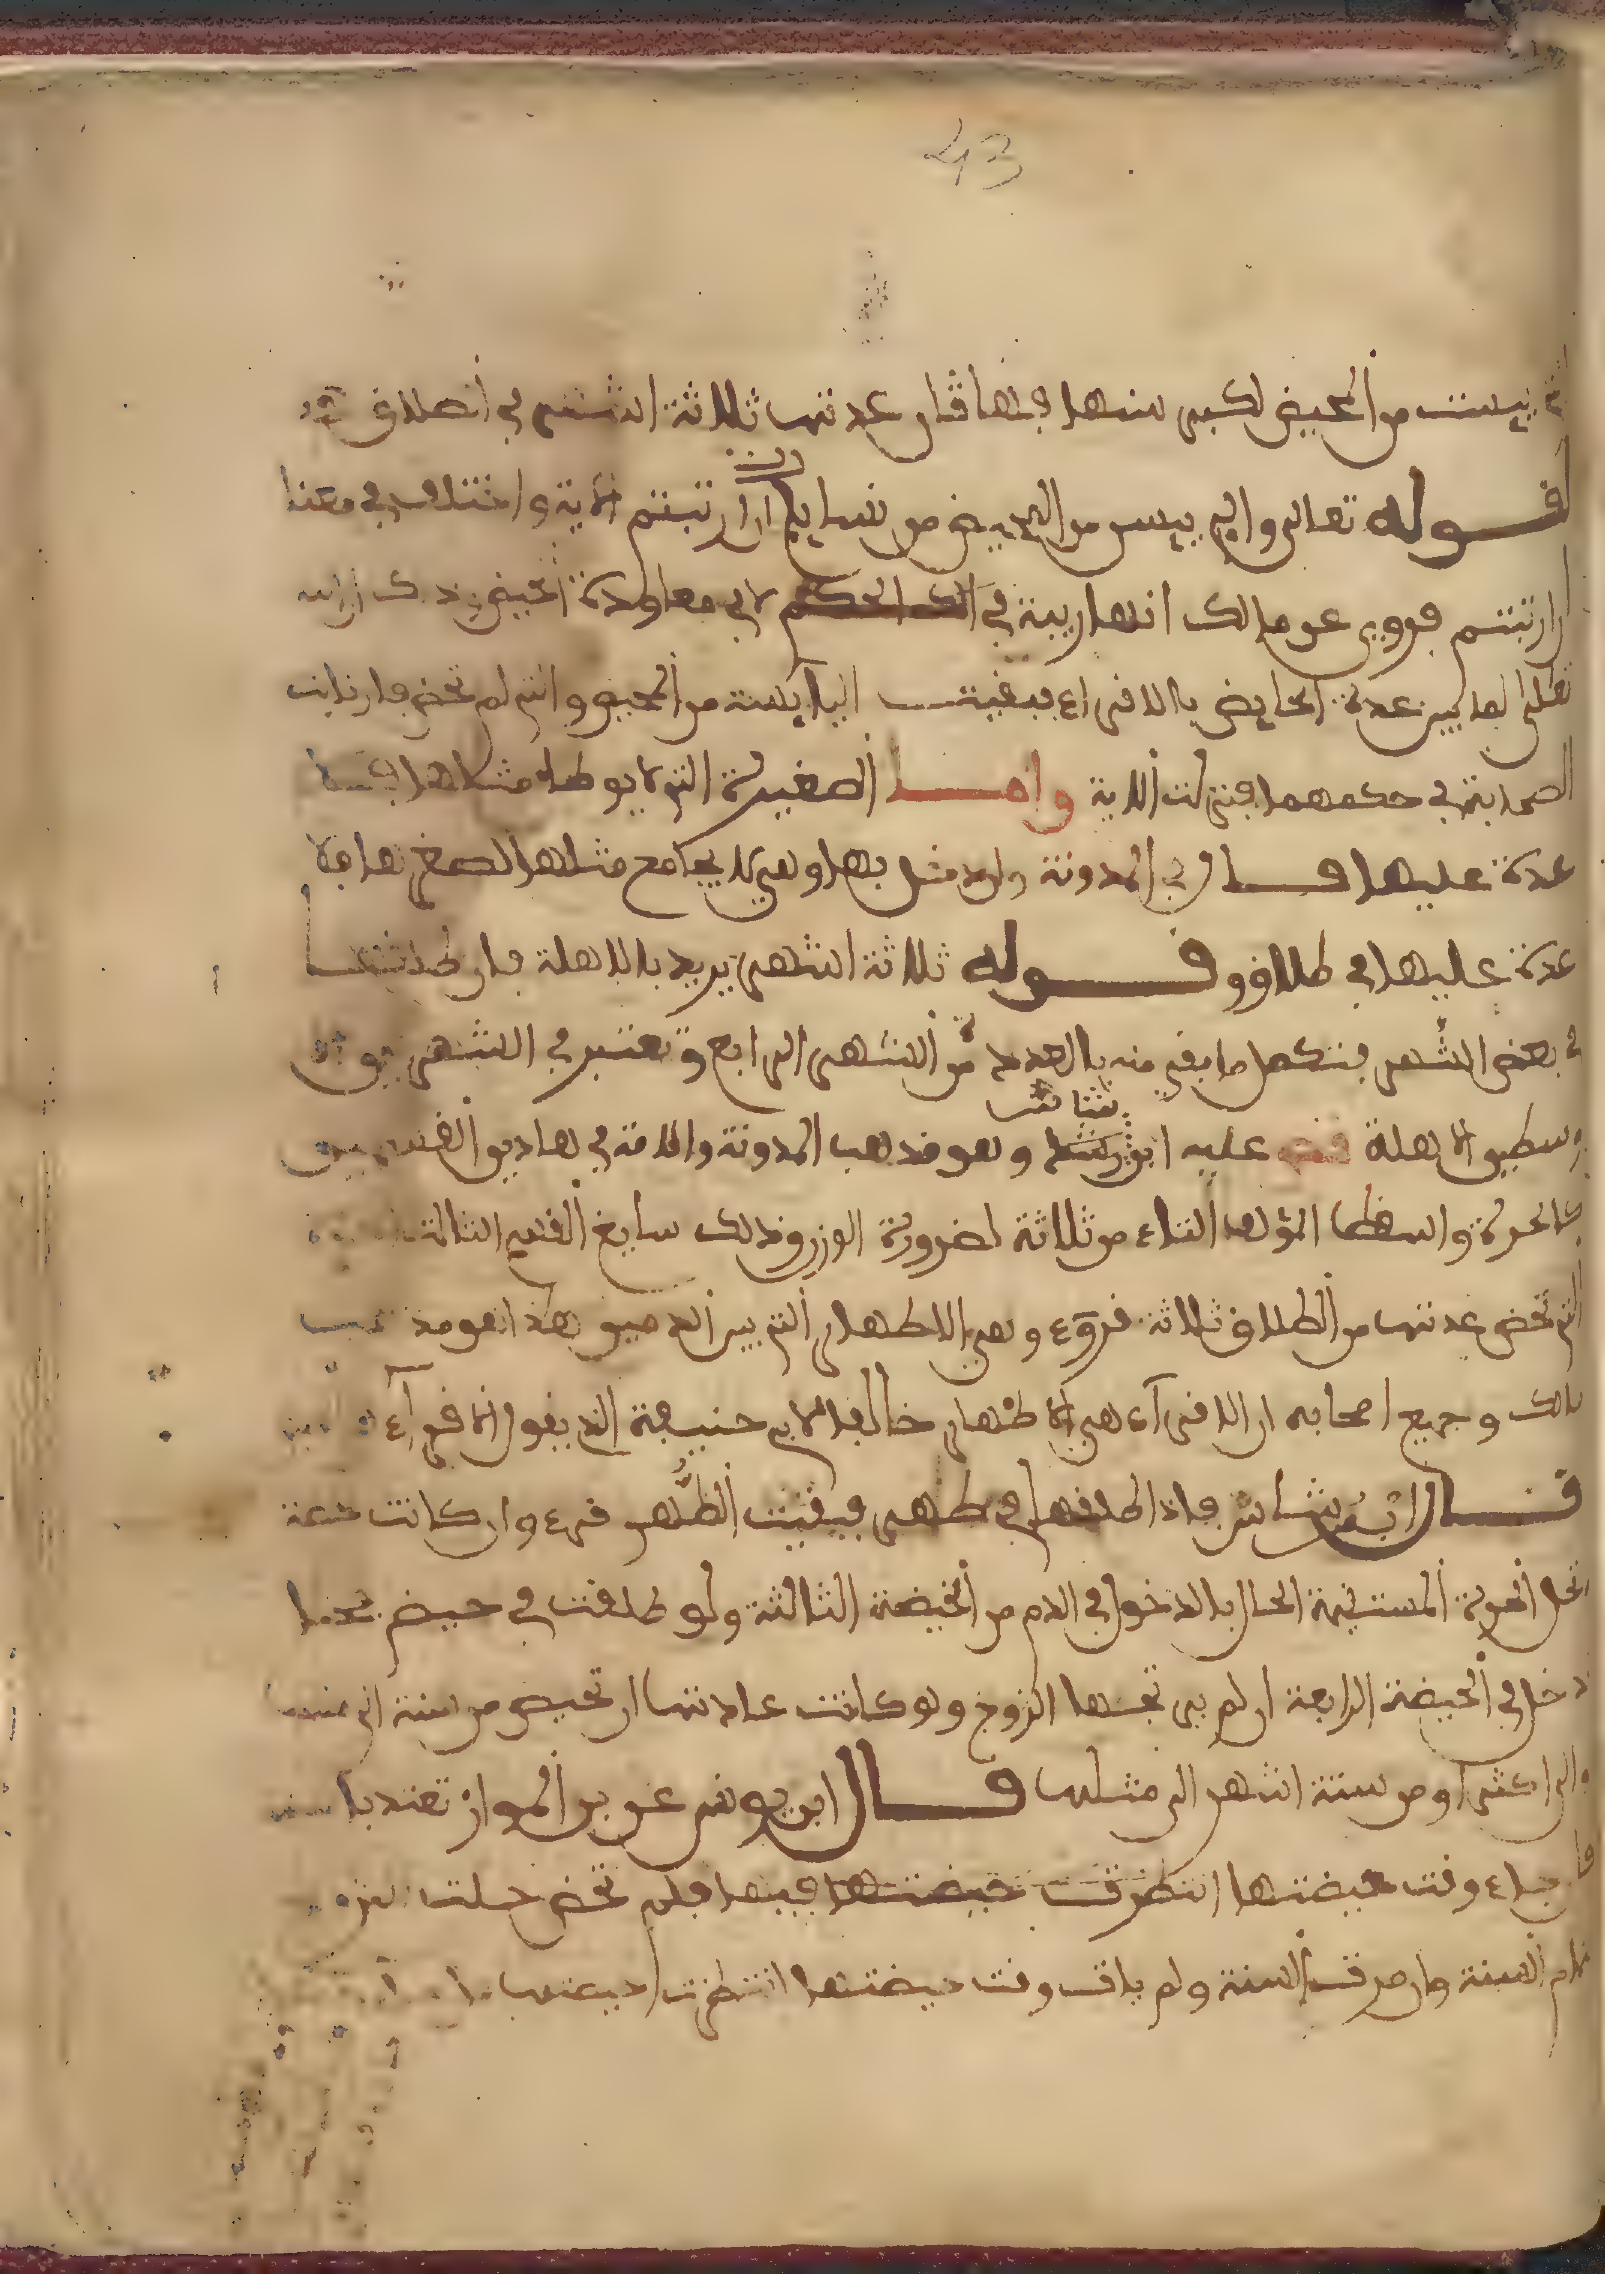 43
ييست من المحيض لكبر سنها فهافان عدتها ثلاثة اشهر في الطلاق
لقوله تعالى والي ييسن من المحيض من نسايكم ان ارتبتم الاية واختلف في معنا
ان ارتبتم فروي عن مالك انها ريبة في الحكم لا في معاودة الحيض وذلك ان الله
تعلى لما بين عدة الحايض بالاقراء فبقيت اليايسة من المحيض والتي لم تحض فارتابت
الصحابة في حكمهما فنزلت الاية واما الصغيرة التي لا يوطا مثلها فلا
عدة عليها قال في المدونة وان دخل بها وهي لا يجامع مثلها لصغرها فلا
عدة عليها في طلاق وقوله ثلاثة اشهر يريد بالاهلة فان طلقها
في بعض الشهر فتكمل ما بقي منه بالعدد من الشهر الرابع وتعتبر في الشهرين
وسطين الاهلة نص عليه ابن شاس وهو مذهب المدونة والامة في هاذين القسمين
كالحرة واسقط المؤلف التاء من ثلاثة لضرورة الوزن وذلك سايغ القسم الثالث
التي تحض عدتها من الطلاق ثلاثة قروء وهي الاطهار التي بين الدمين هذا هو مذهب
مالك وجميع اصحابه ان الاقراء هي الاطهار خالفا لابي حنيفة الذي يقول الاقراء
قال ابن شاس فاذا طلقها في طهر فبقيت الطهر قرء وان كانت
تحل الحرة المستقيمة الحال بالدخول في الدم من الحيضة الثالثة ولو طلقت في حيض
دخل في الحيضة الرابعة ان لم يرتجعها الزوج ولو كانت عادتها ان تحيض من سنة الى مثلها
والى اكثر او من ستة اشهر الى مثلها قال ابن يونس عن بن المواز تعتد
جاء وقت حيضتها انتظرت حيضتها فيها فلم تحض حلت
تمام السنة وان مرت السنة ولم يات وقت حيضتها انتظرت